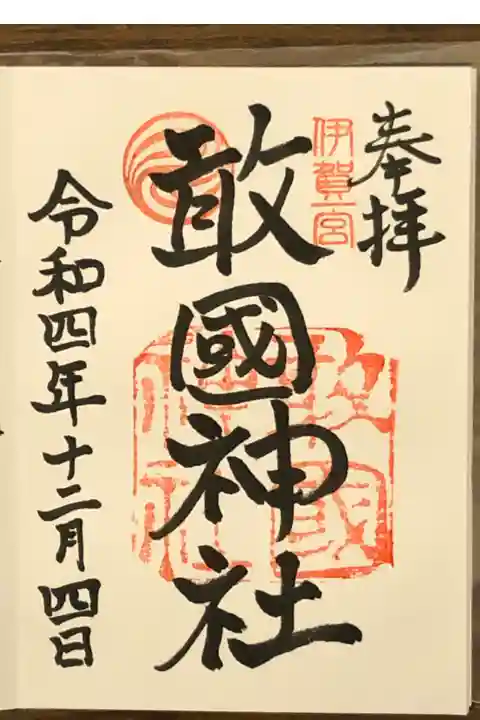 奉拝
伊賀一宮
敢國神社
敢國
神社
令和四年十二月四日